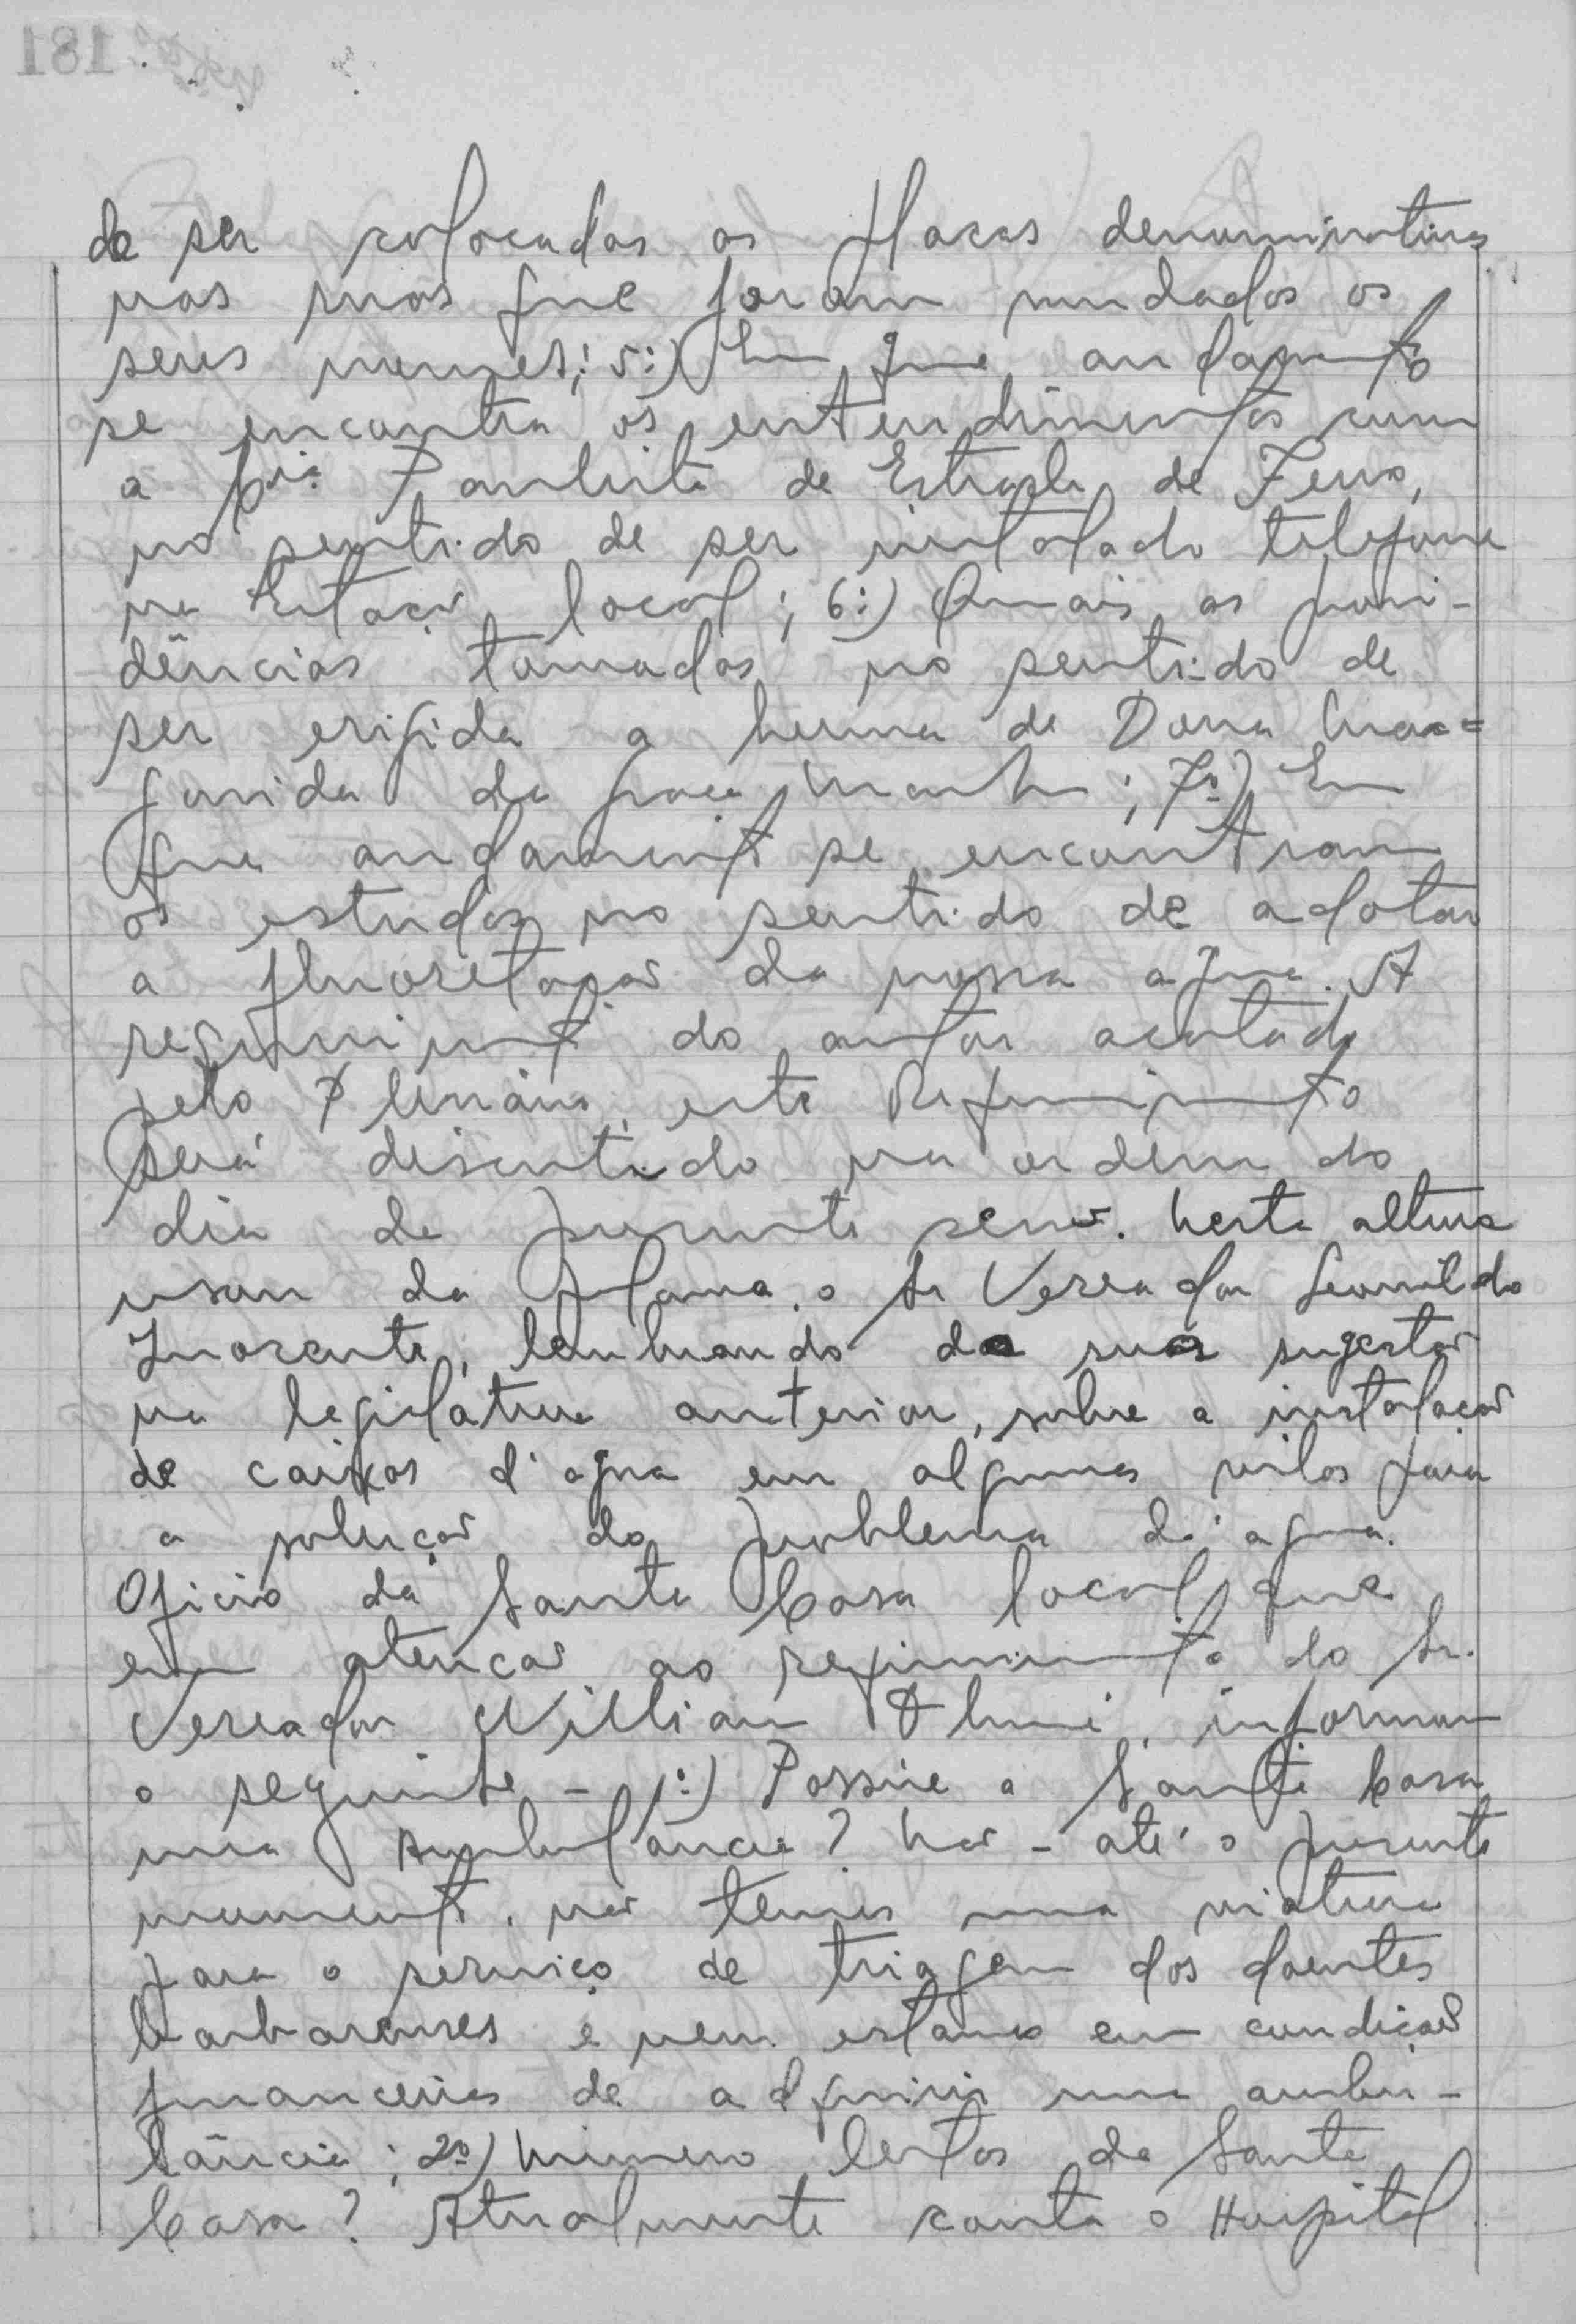 de ser colocadas as placas denominativas
nas ruas que foram mudados os
seus nomes; 5º) Em que andamento
se encontra os entendimentos com
a Cia. Paulista de Estrada de Ferro,
no sentido de ser instalado telefone
na Estação local; 6º) Quais as provi-
dências tomadas no sentido de
ser erigida a herma de Dona Mar=
garida da Graça Martins; 7º) Em
que andamento se encontram
os estudos no sentido de adotar
a fluoretação da nossa agua. A
requerimento do autor acatado
pelo Plenário, este Requerimento
será discutido na ordem do
dia da presente sessão. Nesta altura
usou da palavra o Sr Vereador Leonildo
lembrando da sua sugestão
na legislatura anterior, sobre a instalação
de caixas d'agua em algumas vilas para
a solução do problema d'agua.
Oficio da Santa Casa local que
em atenção ao requerimento do Sr.
Vereador Willian informam
o seguinte - 1º) Possúe a Santa Casa
uma Ambulância? Não - até o presente
momento, não temos uma viatura
para o serviço de triagem dos doentes
barbarenses e nem estamos em condições
financeiras de adquirir uma ambu-
lância; 2º) Número leitos da Santa
Casa? Atualmente conta o Hospital